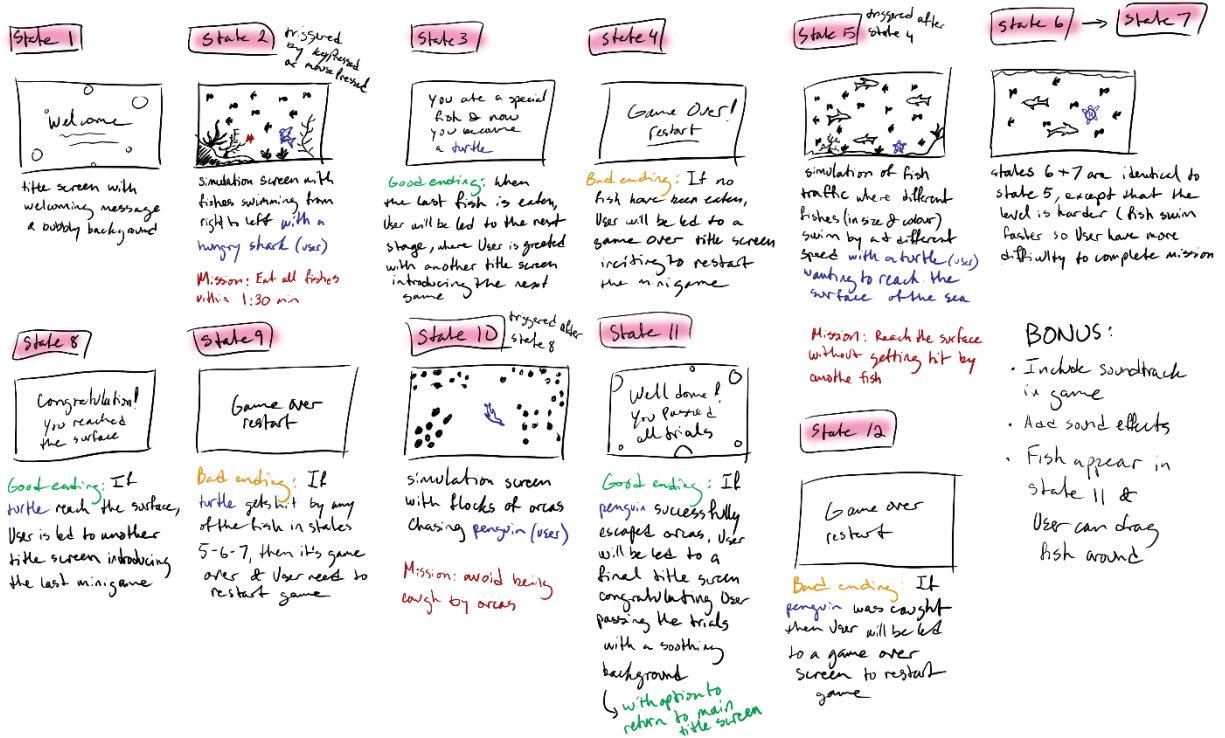 State 1
Welcome
title screen with
welcoming message
a bubbly background
State 2
triggered
by keyPressed
or mousePressed
simulation screen with
fishes swimming from
right to left with a
hungry shark (user)
Mission: Eat all fishes
within 1:30 min
State 3
You ate a special
fish & now
you become
a turtle
Good ending: When
the last fish is eaten,
User will be led to the next
stage, where User is greeted
with another title screen
introducing the next
game
State 4
Game Over!
restart
Bad ending: If no
fish have been eaten,
User will be led to a
game over title screen
inciting to restart
the minigame
State 5
triggered after
state 4
simulation of fish
traffic where different
fishes (in size & colour)
swim by at different
speed with a turtle (user)
wanting to reach the
surface of the sea
Mission: Reach the surface
without getting hit by
anothe fish
State 6 → State 7
states 6+7 are identical to
state 5, except that the
level is harder (fish swim
faster so User have more
difficulty to complete mission
State 8
Congratulation!
You reached
the surface
Good ending: If
turtle reach the surface,
User is led to another
title screen introducing
the last minigame
State 9
Game over
restart
Bad ending: If
turtle gets hit by any
of the fish in states
5-6-7, then it's game
over & User need to
restart game
State 10
triggered after
state 8
simulation screen
with flocks of orcas
chasing penguin (user)
Mission: avoid being
caugh by orcas
State 11
Well done!
You passed
all trials
Good ending: If
penguin successfully
escaped orcas, User
will be led to a
final title screen
congratulating User
passing the trials
with a soothing
background
with option to
return to main
title screen
State 12
Game over
restart
Bad ending: If
penguin was caught
then User will be led
to a game over
screen to restart
game
BONUS:
• Include soundtrack
in game
• Add sound effects
• Fish appear in
state 11 &
User can drag
fish around